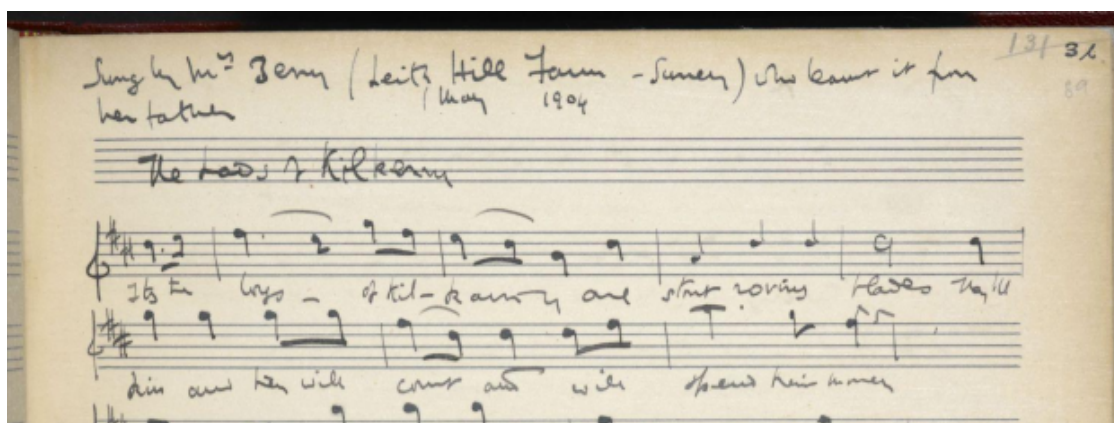 131 31.
Sung by Mrs Berry (Leith Hill Farm - Surrey) who learnt it from
89
her father
May 1904
The Lads of Kilkenny
Its the boys - of Kil-kenny are stout roving blades They'll
and they will court and will spend their money